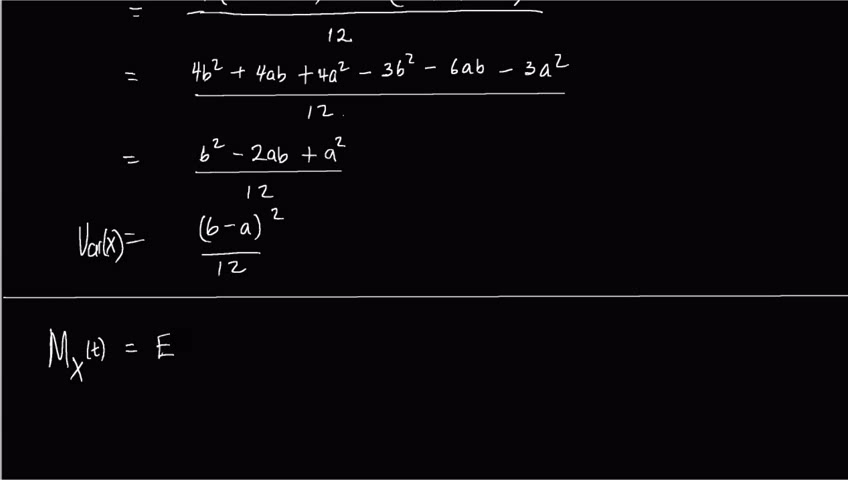 =
12
= 4b² + 4ab + 4a² − 3b² − 6ab − 3a²
12
= b² − 2ab + a²
12
Var(X) = (b−a)²
12
M_X(t) = E